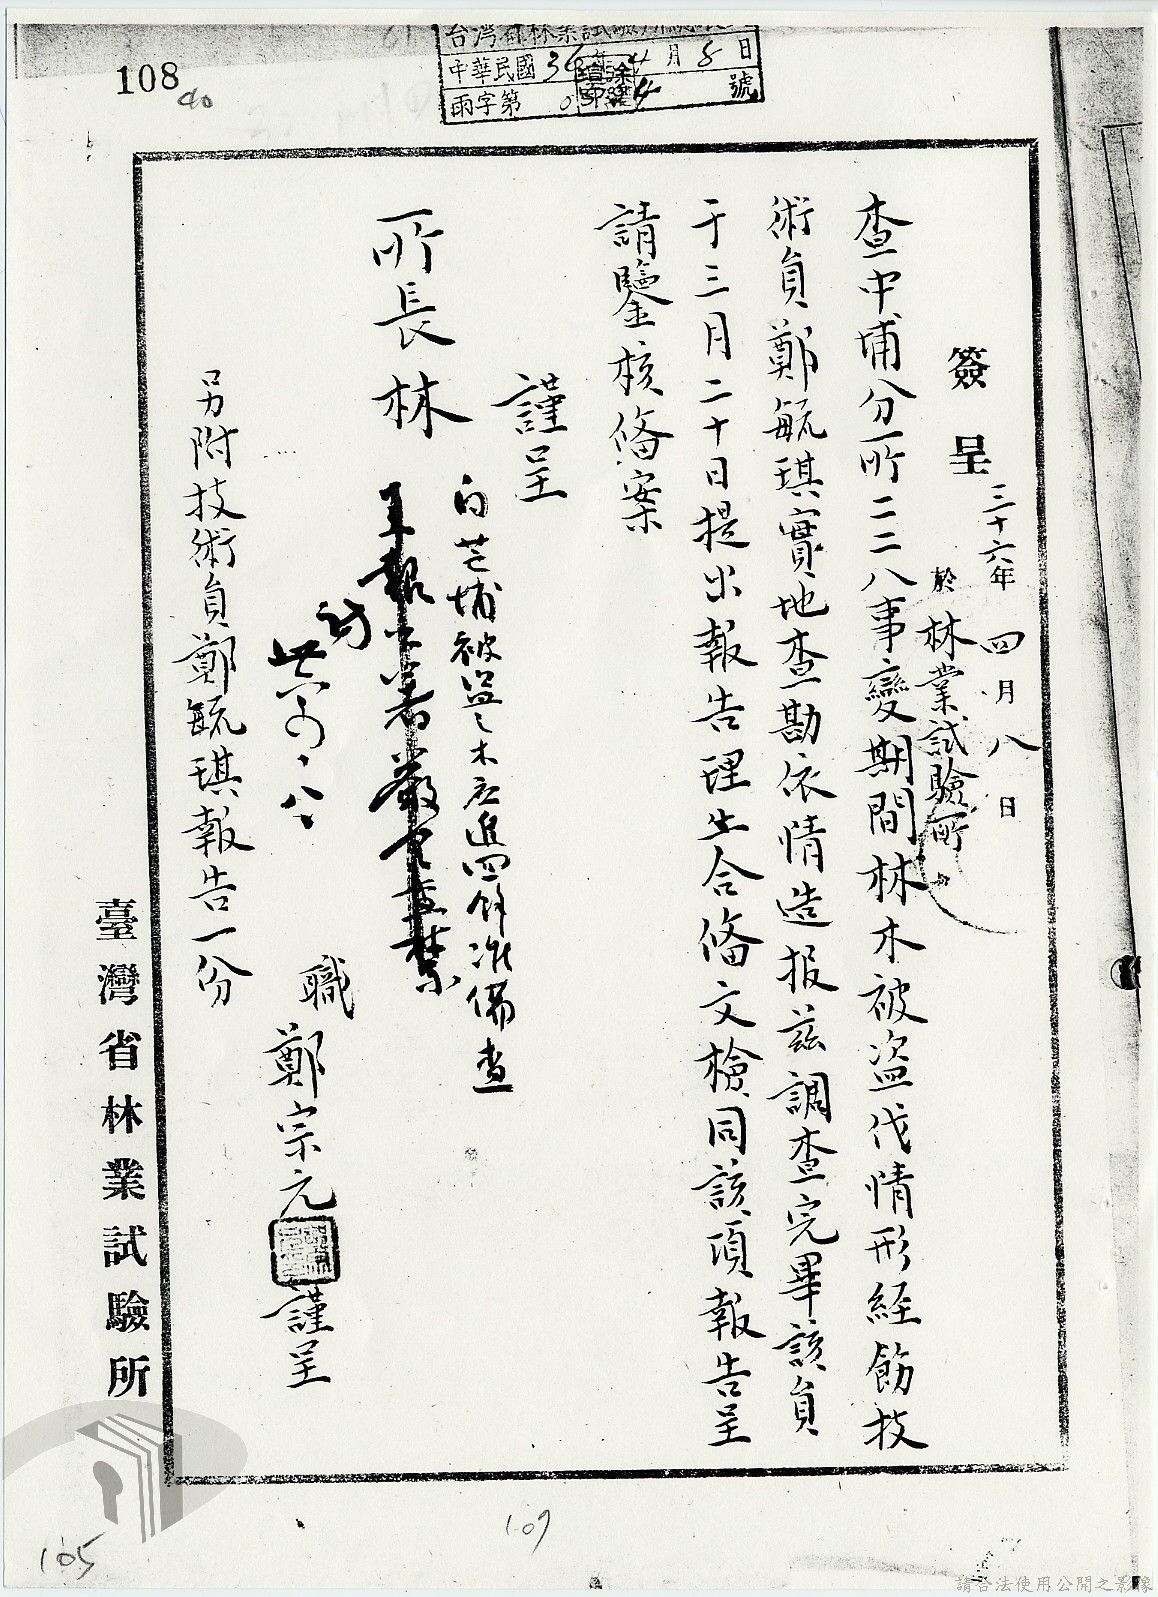 108
40
台灣省林業試驗所
中華民國36年4月8日
雨字第 號
簽呈 三十六年四月八日
於林業試驗所
查中埔分所二二八事變期間林木被盜伐情形經飭技
術員鄭毓琪實地查勘依情造报茲調查完畢該員
于三月二十日提出報告理出合俻文檢同該項報告呈
請鑒核俻案
謹呈
所長林
白芒埔被盜之木应追回餘准備查
職鄭宗元謹呈
另附技術員鄭毓琪報告一份
臺灣省林業試驗所
105
109
請合法使用公開之影像